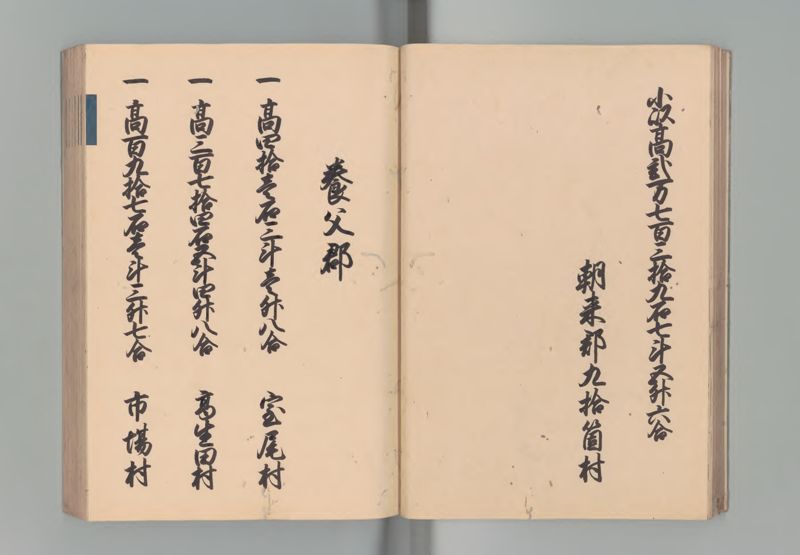 小以高弐万七百三拾九石七斗五升六合
朝来郡九拾箇村
養父郡
一 高四拾壱石三斗壱升八合 室尾村
一 高三百七拾四石五斗四升八合 高生田村
一 高百九拾七石壱斗三升七合 市場村